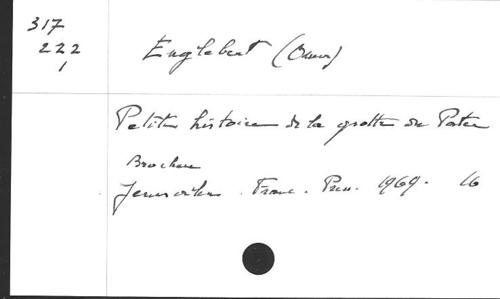 317
222
1
Englebert (Omer)
Petite histoire de la grotte du Pater
Brochure
Jerusalem. Franc. Press. 1969. 16